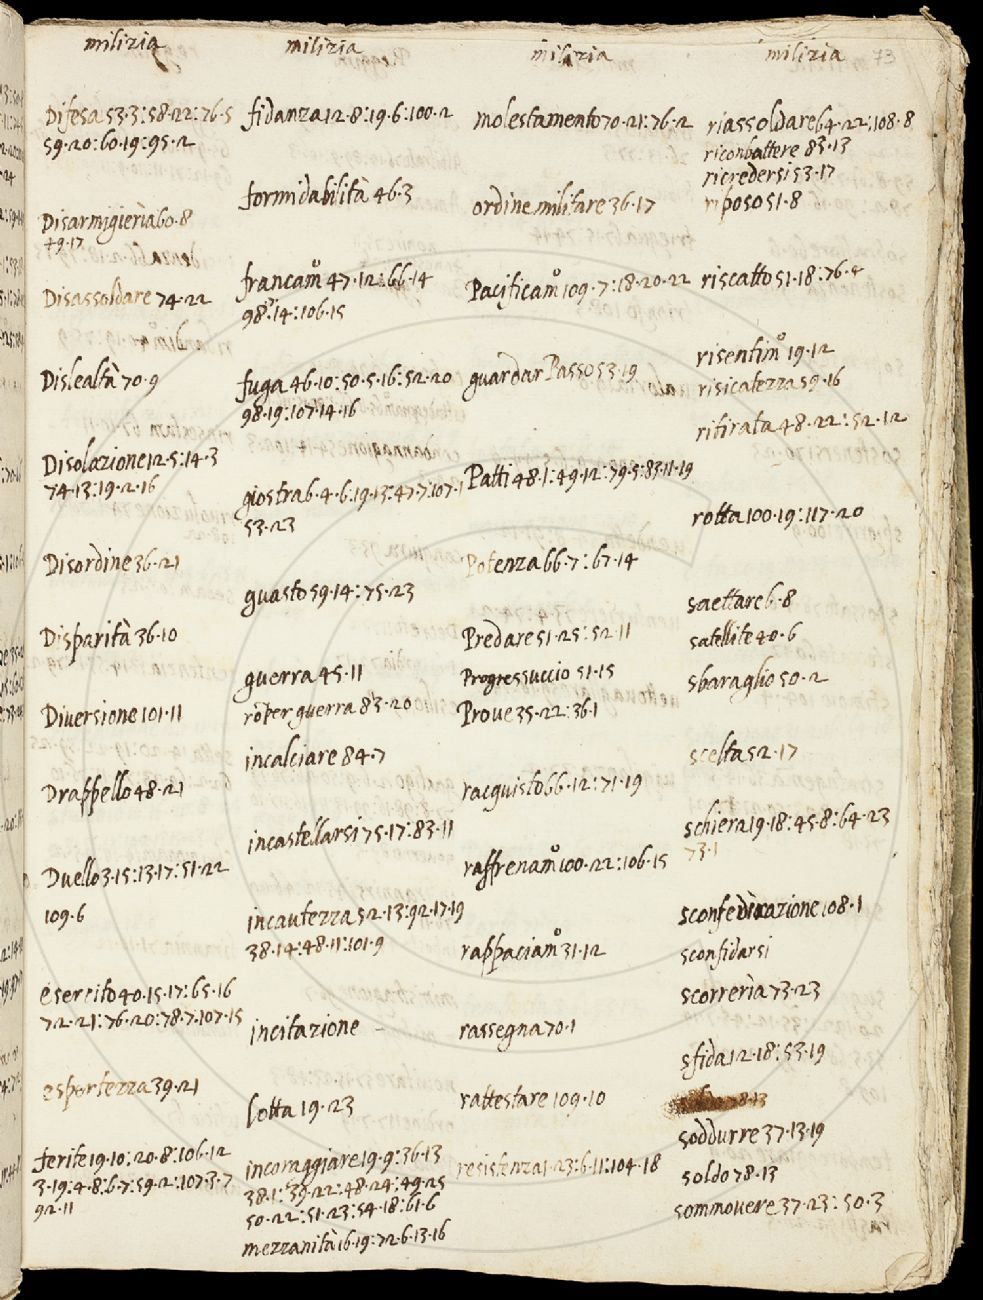 milizia
Difesa 53·3:58·22:76·5
59·20:60·19:95·2
Disarmigierìa 60·8
79·17
Disassoldare 74·22
Dislealtà 70·9
Disolazione 12·5:14·3
74·13:19·2·16
Disordine 36·21
Disparità 36·10
Diversione 101·11
Drappello 48·21
Duello 3·15:13·17:51·22
109·6
esercito 40·15·17:65·16
72·21:76·20:78·7·107·15
esportezza 39·21
ferite 19·10:20·8:106·12
3·19:4·8:6·7:59·2:107·3·7
92·11
milizia
fidanza 12·8:19·6:100·2
formidabilità 46·3
francamo 47·12:66·14
98·14:106·15
fuga 46·10:50·5·16:52·20
98·19:107·14·16
giostra 6·4·6:19·13:47·7:107·1
53·23
guasto 59·14:75·23
guerra 45·11
rõper guerra 83·20
incalciare 84·7
incastellarsi 75·17:83·11
incautezza 52·13:92·17·19
38·14:48·11:101·9
incitazione
lotta 19·23
incoraggiare 19·9:36·13
38·1:39·22:48·24:49·25
50·22:51·23:54·18:61·6
mezzanità 16·19:72·6·13·16
milizia
molestamento 70·21:76·2
ordine militare 36·17
Pacificamo 109·7:18·20·22
guardar Passo 53·19
Patti 48·1:49·12:79·5:83·11·19
Potenza 66·7:67·14
Predare 51·25:52·11
Progressuccio 51·15
Prove 35·22:36·1
racquisto 66·12:71·19
raffrenamo 100·22:106·15
rappaciamo 31·12
rassegna 70·1
rattestare 109·10
resistenza 1·23:6·11:104·18
milizia 73
riassoldare 64·22:108·8
riconbattere 83·13
ricredersi 53·17
riposo 51·8
riscatto 51·18:76·4
risentimo 19·12
risicatezza 59·16
ritirata 48·22:52·12
rotta 100·19:117·20
saettare 6·8
satellite 40·6
sbaraglio 50·2
scelta 52·17
schiera 19·18:45·8:64·23
73·1
sconfederazione 108·1
sconfidarsi
scorrerìa 73·23
sfida 12·18:53·19
soddurre 37·13·19
soldo 78·13
sommovere 37·23:50·3